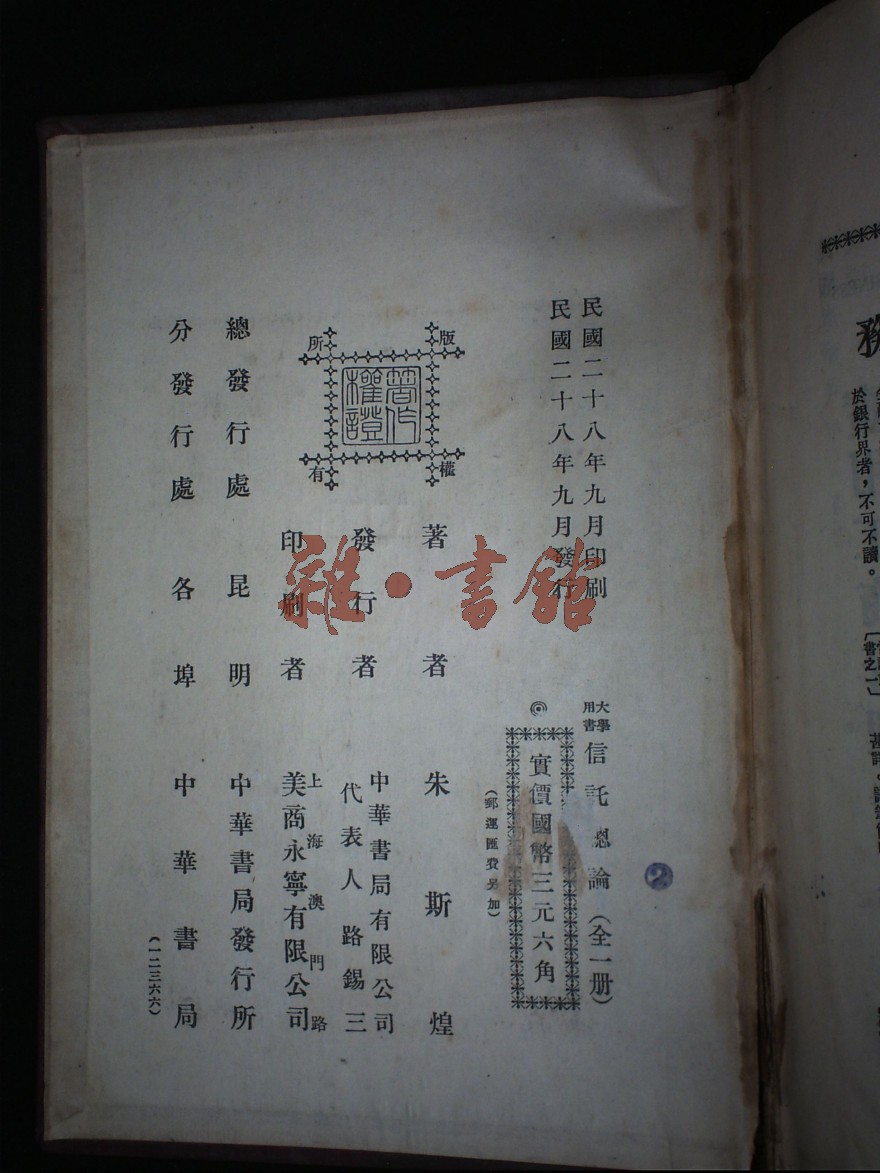 民國二十八年九月印刷
民國二十八年九月發行
大學用書 信託總論（全一册）
◎實價國幣三元六角
（郵運匯費另加）
版權所有
著作權證
著者 朱斯煌
發行者 中華書局有限公司
代表人 路錫三
印刷者 上海澳門路
美商永寧有限公司
總發行處 昆明 中華書局發行所
分發行處 各埠 中華書局
（一二三六六）
雜·書館
2
於銀行界者，不可不讀。
書之一